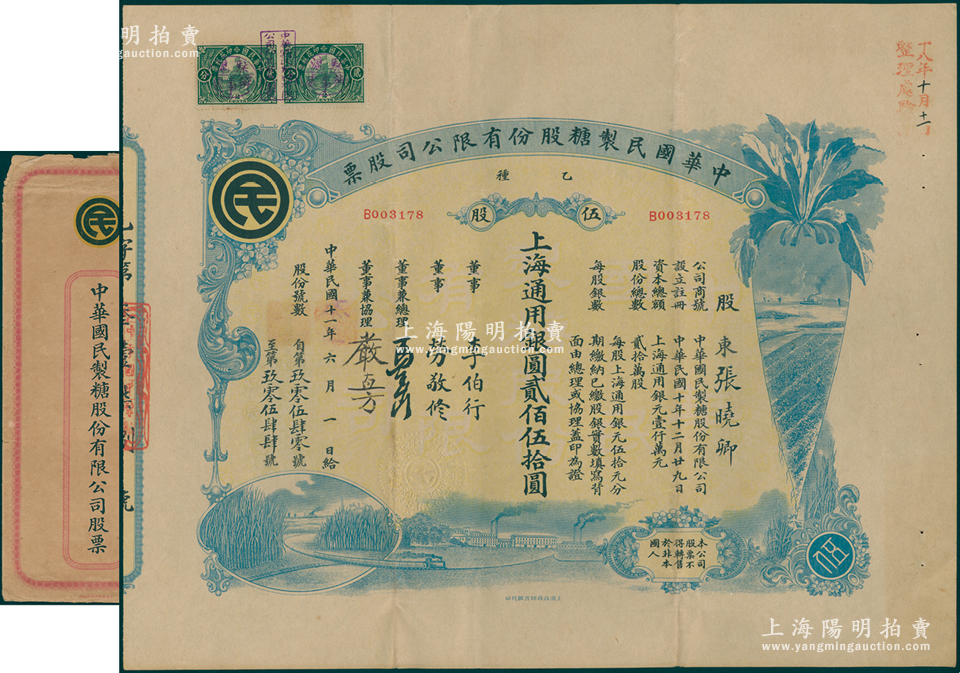 上海陽明拍賣
www.yangmingauction.com
中華國民製糖股份有限公司股票
乙種
伍股
B003178
B003178
股東張曉卿
公司商號 中華國民製糖股份有限公司
設立註冊 中華民國十年十二月廿九日
資本總額 上海通用銀元壹仟萬元
股份總數 貳拾萬股
每股銀數 每股上海通用銀元伍拾元分
期繳納已繳股銀實數填寫背
面由總理或協理蓋印為證
上海通用銀圓貳佰伍拾圓
董事 李伯行
董事 勞敬修
董事兼總理
董事兼協理
中華民國十一年六月一日給
股份號數 自第玖零伍肆零號
至第玖零伍肆肆號
本公司
股票不
得轉售
於非本
國人
民
民
中華國民製糖股份有限公司股票
上海陽明拍賣
www.yangmingauction.com
上海陽明拍賣
www.yangmingauction.com